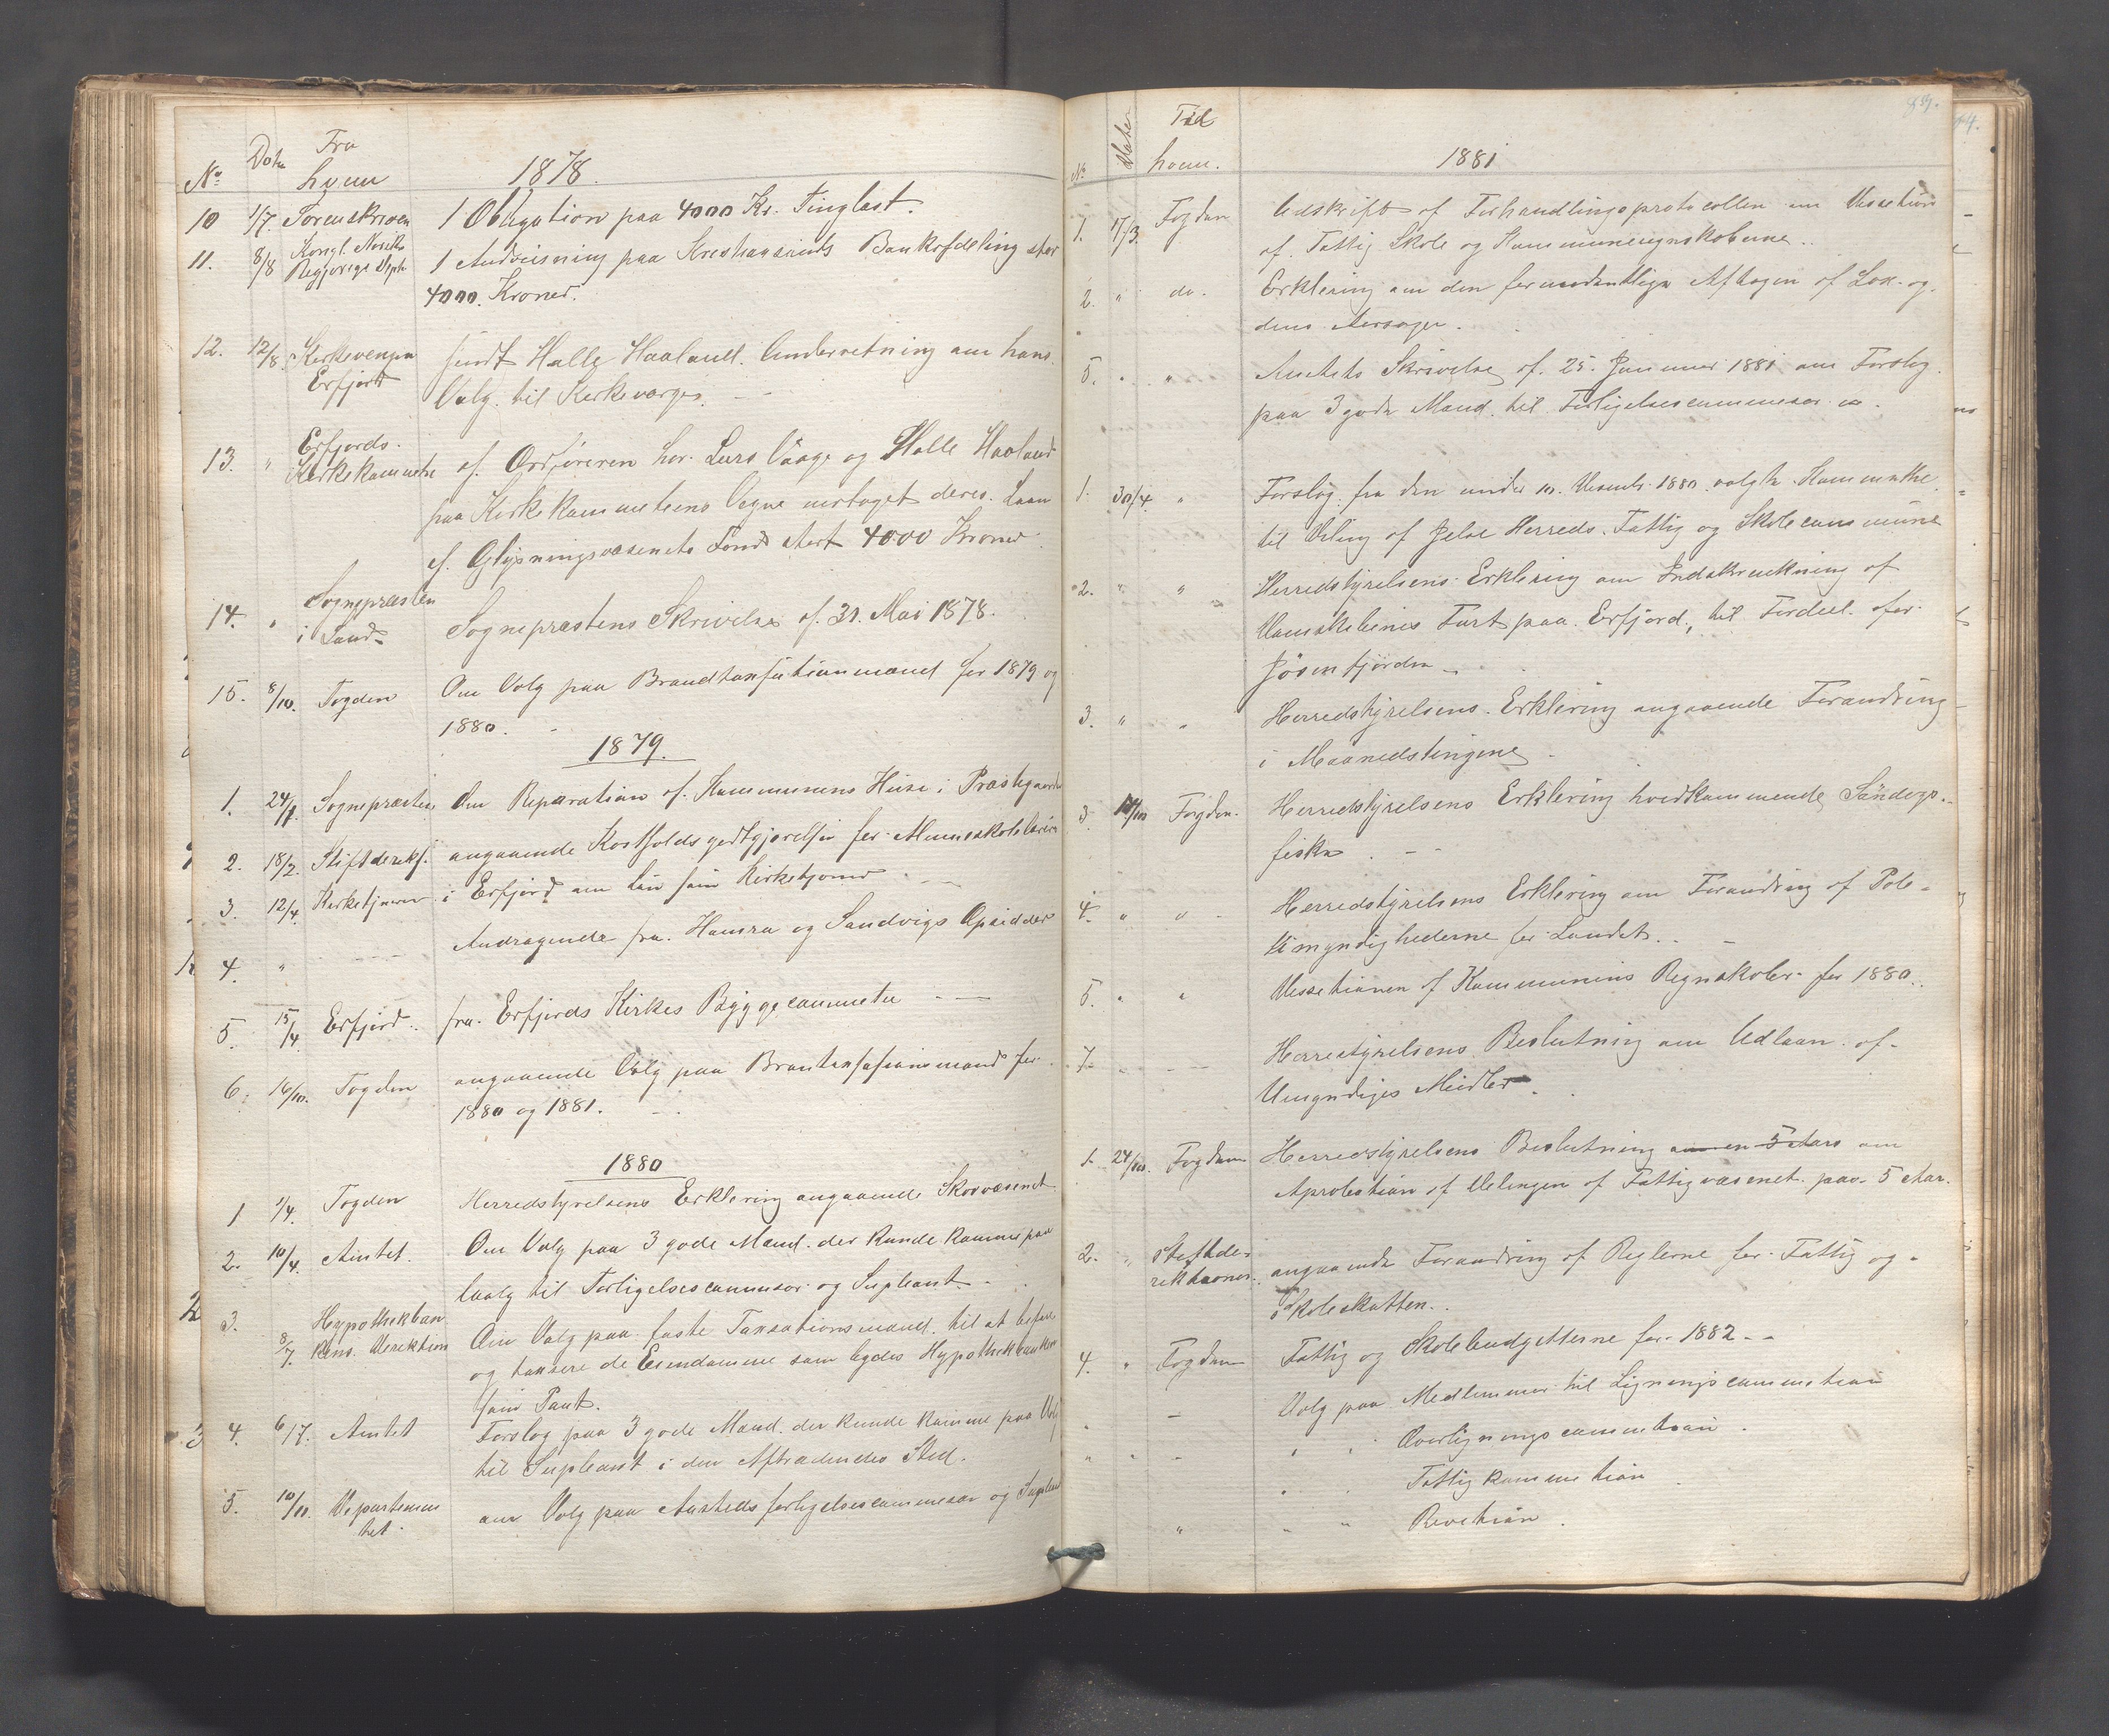 No Dato Fra
hvem 1878.
10 1/7. Sorenskriven 1 Obligation paa 4000 Kr. Tinglæst.
11. 8/8 Kongl. Norske
Regjerings Dept. 1 Andvisning paa Bankafdeling stor
4000. Kroner.
12. 12/8. Kirkevergen
Erfjord sendt Halle Haaland. Underretning om hans
Valg til Kirkeverge.
13. " Erfjords
Kirkekommete af Ordføreren har Lars Vaage og Halle Haaland
paa Kirkekommeteens Vegne mottaget deres Laan
af Oplysningsvæsenets Fond stort 4000 Kroner
14. " Sognepræsten
i Sand Sogneprestens Skrivelse af 31. Mai 1878.
15. 8/10. Fogden Om Valg paa Brandtaxationsmænd for 1879 og
1880.
1879.
1. 24/1 Sognepræsten Om Reparation af Kommunens Huse i Præstegaarden
2. 18/2. Stiftdireks. angaaende Kostholdsgodtgjørelse for Almueskolelærer
3. 12/4. Kirketjener i Erfjord om Løn som Kirketjener
4. " Andragende fra Hamra og Sandvigs Opsidder
5. 15/4. Erfjord. fra Erfjords Kirkes Byggecommetee
6. 16/10. Fogden angaaende Valg paa mænd for
1880 og 1881.
1880
1 1/4. Fogden Herredstyrelsens Erklering angaaende Skovvæsenet
2. 10/4. Amtet. Om Valg paa 3 gode Mænd. der kunde komme paa
Valg til Forligelsescommisær og Supleant
3. 8/7. Hypothekban
kens Direktion Om Valg paa faste Taxationsmænd til at
og taxsere de Eiendomme som bydes Hypothekbanken
som Pant.
4. 6/7. Amtet Forslag paa 3 gode Mænd. der kunde komme paa Valg
til Supleant i den Aftrædendes Sted.
5. 10/10. Departemen
tet. om Valg paa forligelsescommesær og Supleant
No Dato Til
hvem. 1881
1. 17/3. Fogden Udskrift af Forhandlingsprotocollen om Dessetion
af Fattig Skole og Kommuneregnskaberne.
2. " do. Erklering om den formendentlige Aftagen af Lax og
dens Aarsager.
5. " " Amtets Skrivelse af 25. Januar 1881 om Forslag
paa 3 gode Mænd til Forligelsescommesær
1. 30/4 " Forslag fra den under 10. Desembr. 1880 valgte Kommitte
til Deling af Jelse Herreds Fattig og Skolecommune
2. " " Herredstyrelsens Erklering om Indskrenkning af
Damskibenes Fart paa Erfjord, til Fordeel for
Jøsenfjorden
3. " " Herredstyrelsens Erklering angaaende Forandring
i Maanedstingene
3. 14/10 Fogden. Herredstyrelsens Erklering hvedkommende Søndags-
fiske
4. " " Herredstyrelsens Erklering om Forandring af Pole-
timyndighederne for Landet.
5. " " Dessetionen af Kommunens Regnskaber for 1880.
7. Herrestyrelsens Beslutning om Udlaan af
Umyndiges Midler.
1. 24/10. Fogden Herredstyrelsens Beslutning om en 5 Aars om
Aprobation af Delingen af Fattigvæsenet paa 5 Aar.
2. " Stiftdi-
rektionen. angaaende Forandring af Reglerne for Fattig og
Skoleskatten.
4. " Fogden Fattig og Skolebudgetterne for 1882
" - Valg paa Medlemmer til Ligningscommetion
" " - " " Overligningscommetion
" " Fattigkommetion
" " " Revetion